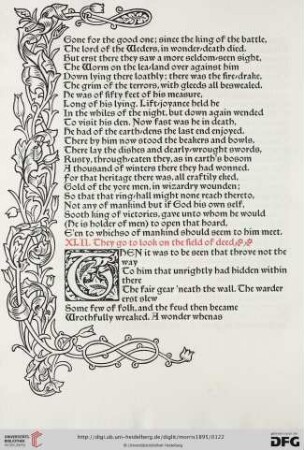 Gone for the good one; since the king of the battle,
The lord of the Weders, in wonder-death died.
But erst there they saw a more seldom-seen sight,
The Worm on the lea-land over against him
Down lying there loathly; there was the fire-drake,
The grim of the terrors, with gleeds all beswealed.
He was of fifty feet of his measure,
Long of his lying. Lift-joyance held he
In the whiles of the night, but down again wended
To visit his den. Now fast was he in death,
He had of the earth-dens the last end enjoyed.
There by him now stood the beakers and bowls,
There lay the dishes and dearly-wrought swords,
Rusty, through-eaten they, as in earth's bosom
A thousand of winters there they had wonned.
For that heritage there was, all craftily eked,
Gold of the yore men, in wizardry wounden;
So that that ring-hall might none reach thereto,
Not any of mankind but if God his own self,
Sooth king of victories, gave unto whom he would
(He is holder of men) to open that hoard,
E'en to whichso of mankind should seem to him meet.
XLII. They go to look on the field of deed.
THEN it was to be seen that throve not the
way
To him that unrightly had hidden within
there
The fair gear 'neath the wall. The warder
erst slew
Some few of folk, and the feud then became
Wrothfully wreaked. A wonder whenas
UNIVERSITÄTS-
BIBLIOTHEK
HEIDELBERG
http://digi.ub.uni-heidelberg.de/diglit/morris1895/0122
© Universitätsbibliothek Heidelberg
DFG